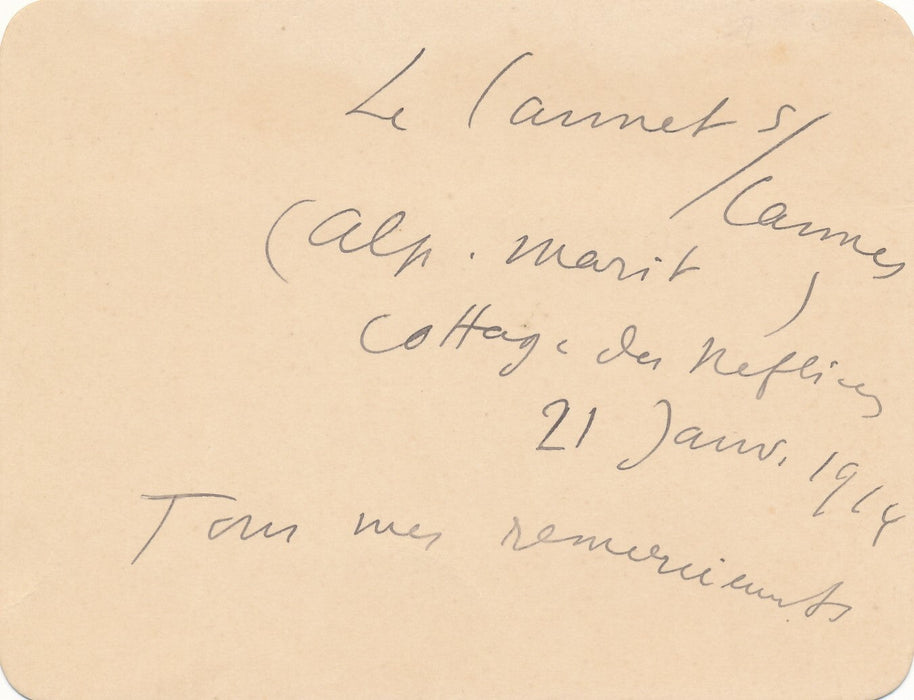 Le Cannet s/Cannes
(Alp. Marit)
Cottage des Nefliers
21 Janv. 1914
Tous mes remerciements